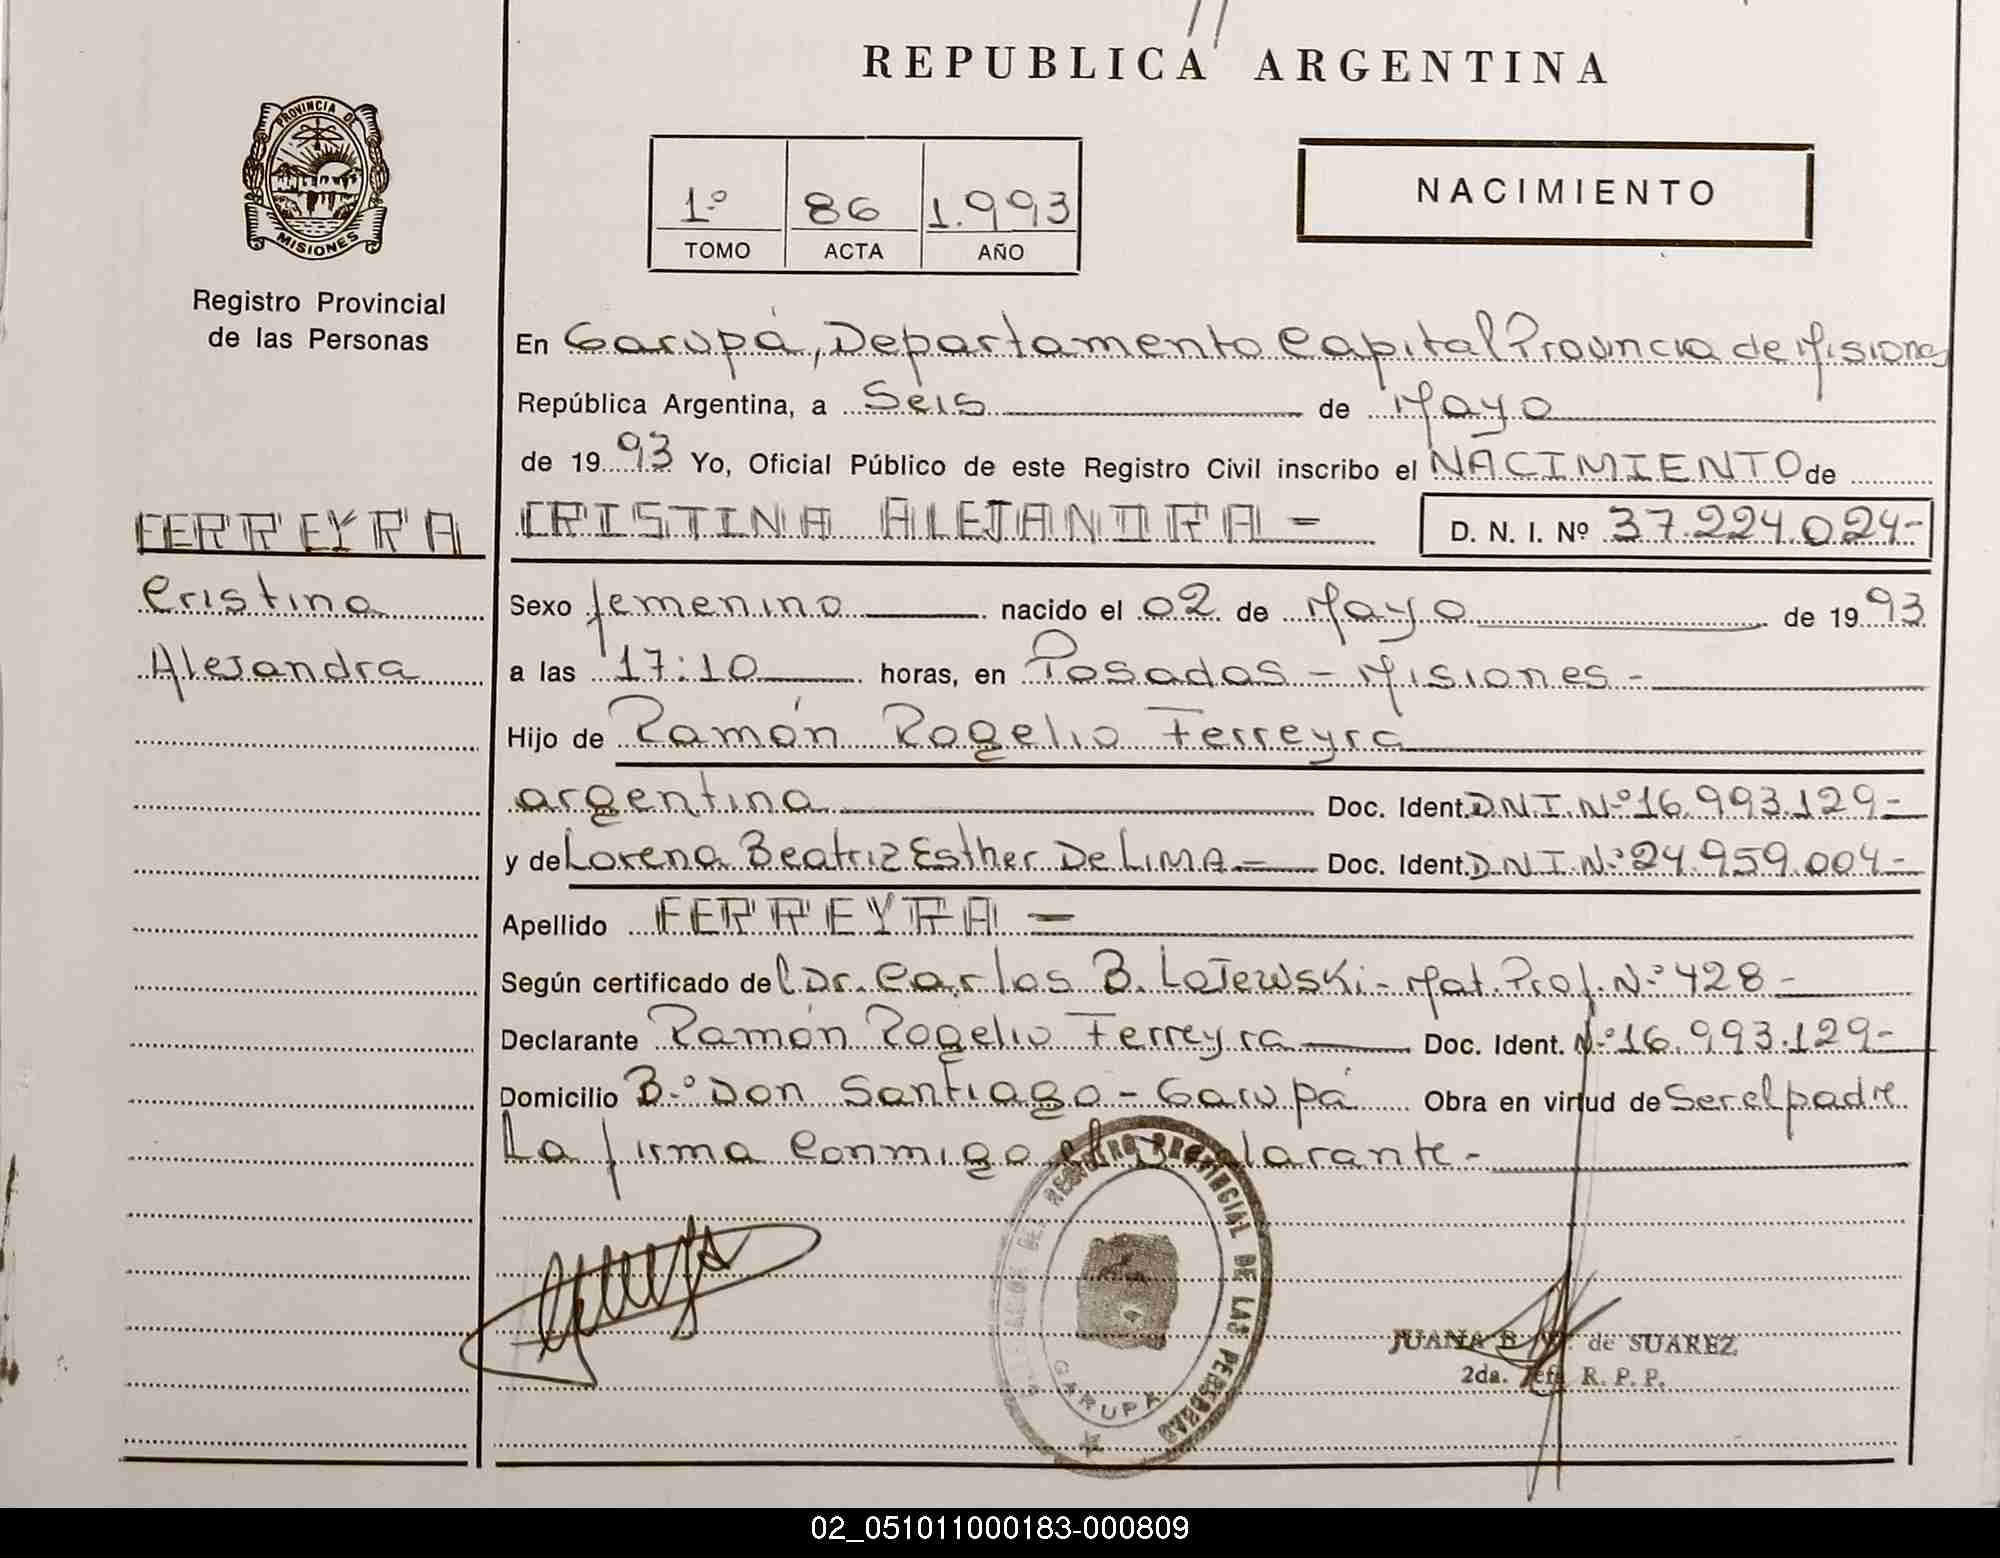 REPUBLICA ARGENTINA
PROVINCIA DE
MISIONES
Registro Provincial
de las Personas
1º 86 1.993
TOMO ACTA AÑO
NACIMIENTO
En Garupá, Departamento Capital Provincia de Misiones
República Argentina, a Seis de Mayo
de 1993 Yo, Oficial Público de este Registro Civil inscribo el NACIMIENTO de
FERREYRA
Cristina
Alejandra
CRISTINA ALEJANDRA - D. N. I. Nº 37.224.024-
Sexo femenino nacido el 02 de Mayo de 1993
a las 17:10 horas, en Posadas - Misiones -
Hijo de Ramón Rogelio Ferreyra
argentina Doc. Ident. D.N.I. Nº 16.993.129-
y de Lorena Beatriz Esther De LIMA = Doc. Ident. D.N.I. Nº 24.959.004-
Apellido FERREYRA -
Según certificado del Dr. Carlos B. Lajewski - Mat. Prof. Nº 428 -
Declarante Ramón Rogelio Ferreyra Doc. Ident. Nº 16.993.129-
Domicilio Bº Don Santiago - Garupá Obra en virtud de Ser el padre
La firma Conmigo el declarante -
REGISTRO PROVINCIAL DE LAS PERSONAS
GARUPA
JUANA B. de SUAREZ
2da. Jefe R. P. P.
02_051011000183-000809